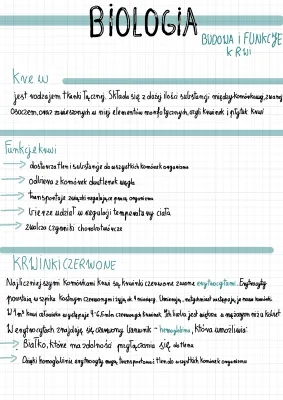 BIOLOGIA
BUDOWA I FUNKCJE
KRWI
Krew
jest rodzajem tkanki łącznej. Składa się z dużej ilości substancji międzykomórkowej, zwanej
osoczem, oraz zawieszonych w niej elementów morfotycznych, czyli krwinek i płytek krwi
Funkcje krwi
dostarcza tlen i substancje do wszystkich komórek organizmu
odbiera z komórek dwutlenek węgla
transportuje związki regulujące pracę organizmu
bierze udział w regulacji temperatury ciała
zwalcza czynniki chorobotwórcze
KRWINKI CZERWONE
Najliczniejszymi komórkami krwi są krwinki czerwone zwane erytrocytami. Erytrocyty
powstają w szpiku kostnym czerwonym i żyją ok. 4 miesięcy. Umierają, natychmiast zastępują je nowe komórki.
W 1 mm³ krwi człowieka występuje 4-6 mln czerwonych krwinek. Ich liczba jest większa u mężczyzn niż u kobiet
W erytrocytach znajduje się czerwony barwnik - hemoglobina, która umożliwia:
Białko, które ma zdolność przyłączania się do tlenu
Dzięki hemoglobinie erytrocyty mogą transportować tlen do wszystkich komórek organizmu